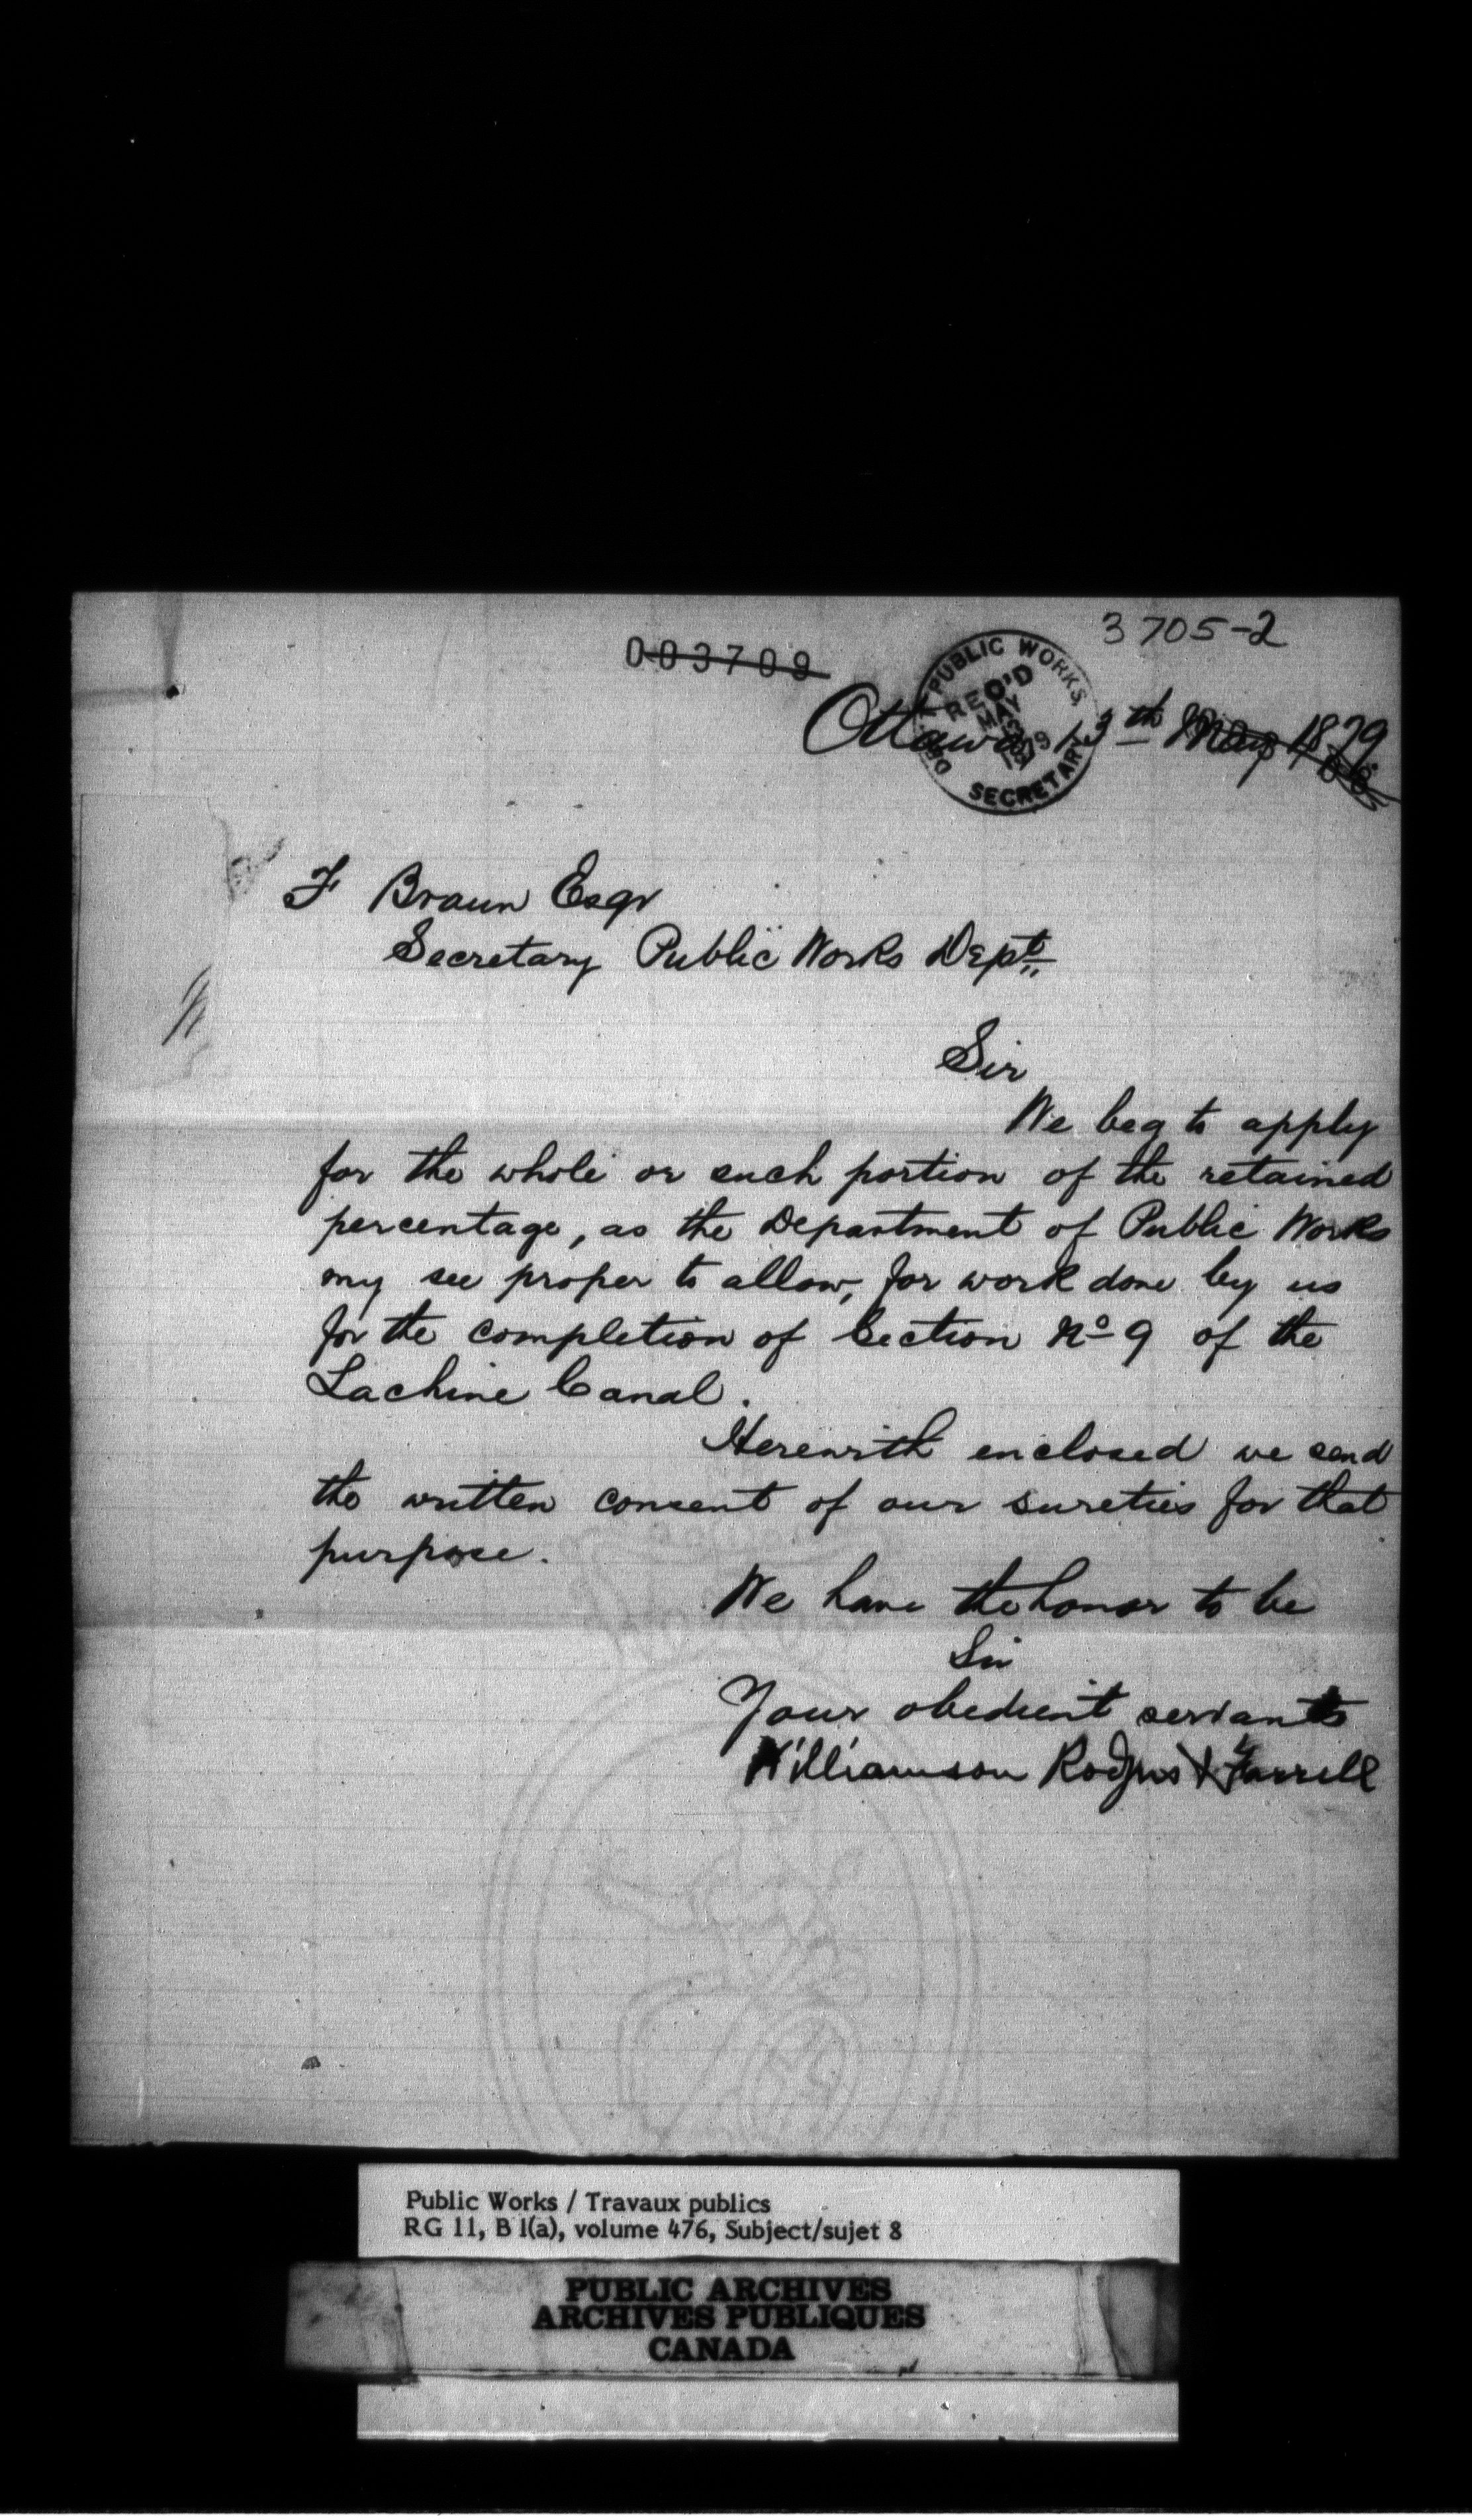 3705-2
003709
DEPT. PUBLIC WORKS,
REC'D
MAY
13
1879
SECRETARY
Ottawa 13th May 1879
F Braun Esqr
Secretary Public Works Dept
Sir
We beg to apply
for the whole or such portion of the retained
percentage, as the Department of Public Works
my see proper to allow, for work done by us
for the completion of Section No 9 of the
Lachine Canal.
Herewith enclosed we send
the written consent of our sureties for that
purpose.
We have the honor to be
Sir
Your obedient servants
Williamson Rodgers & Farrell
Public Works / Travaux publics
RG 11, B 1(a), volume 476, Subject/sujet 8
PUBLIC ARCHIVES
ARCHIVES PUBLIQUES
CANADA